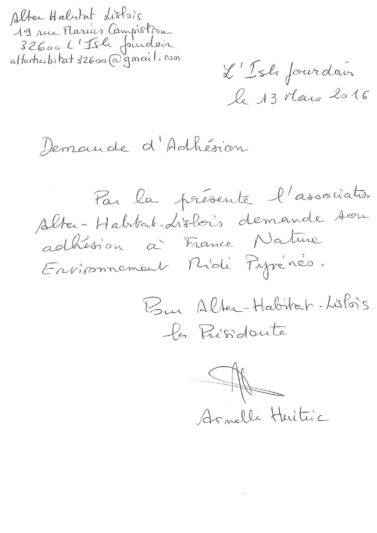 Alter Habitat Lislois
19 rue Marius Campistron
32600 L'Isle Jourdain
alterhabitat32600@gmail.com
L'Isle Jourdain
le 13 Mars 2016
Demande d'Adhésion
Par la présente l'association
Alter-Habitat-Lislois demande son
adhésion à France Nature
Environnement Midi Pyrénées.
Pour Alter-Habitat-Lislois
la Présidente
Armelle